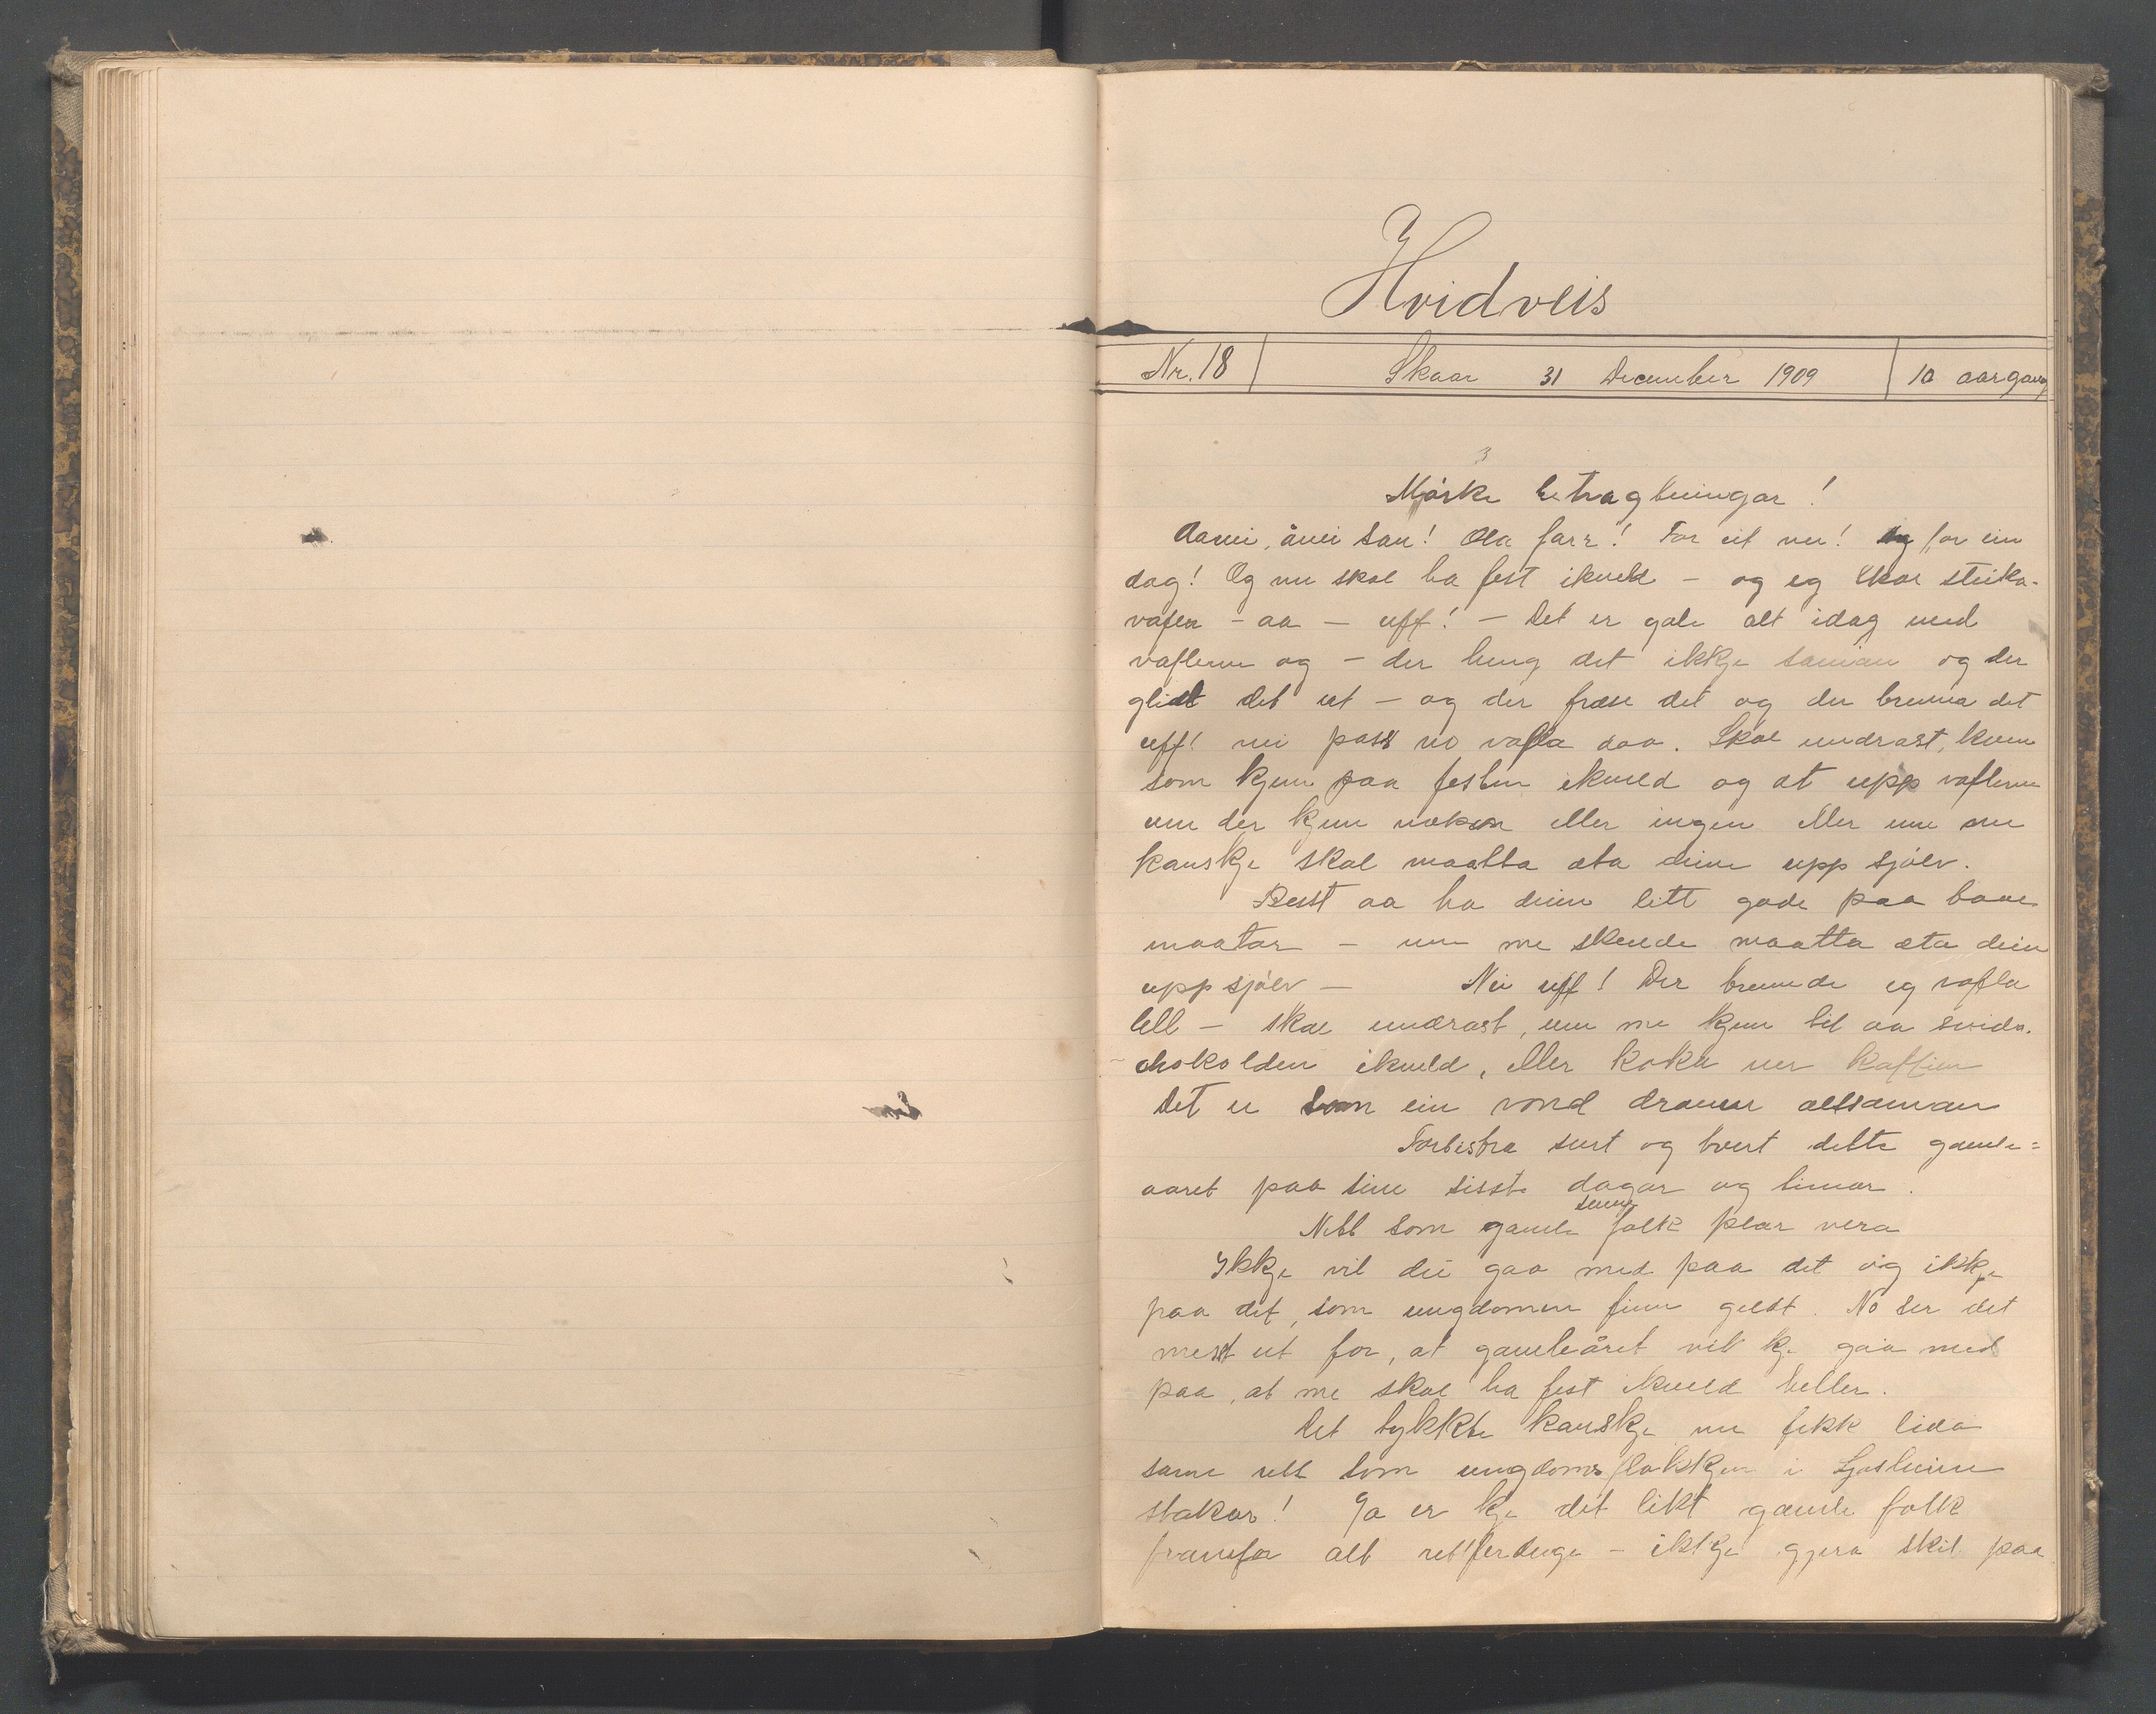 Hvidveis
Nr. 18 Skaar 31 December 1909 10 aargang
3
Mørke betragtningar!
Aanei, ånei san! Ola farr! For eit ver! og for ein
dag! Og me skal ha fest ikveld - og eg skal steika
vafla - aa - uff! - Det er gale alt idag med
vaflerne og - der heng det ikkje saman og der
glid det ut - og der fræse det og der brenna det
uff! nei pass no vafla daa. Skal undrast, kven
som kjem paa festen ikveld og æt upp vaflerne
um der kjem nokon eller ingen eller um me
kanskje skal maatta æta deim upp sjølv.
Best aa ha deim litt gode paa baae
maatar - um me skulde maatta æta deim
upp sjølv - Nei uff! Der brennde eg vafla
lell - skal undrast, um me kjem til aa svida
chokolden ikveld, eller koka ner kaffien
Det er som ein vond draum altsaman
Forbistra surt og tvert dette gamle=
aaret paa sine siste dagar og timar.
Nett som gamle sume folk plar vera
Ikkje vil dei gaa med paa det og ikkje
paa det, som ungdomen finn gildt. No ser det
mest ut for, at gamleåret vil kje gaa med
paa, at me skal ha fest ikveld heller.
Det tykkte kanskje me fekk lida
same rett som ungdomsflokkjen i Ljosheim
stakar! Ja er kje det likt gamle folk
framfor alt rettferduge - ikkje gjera skil paa